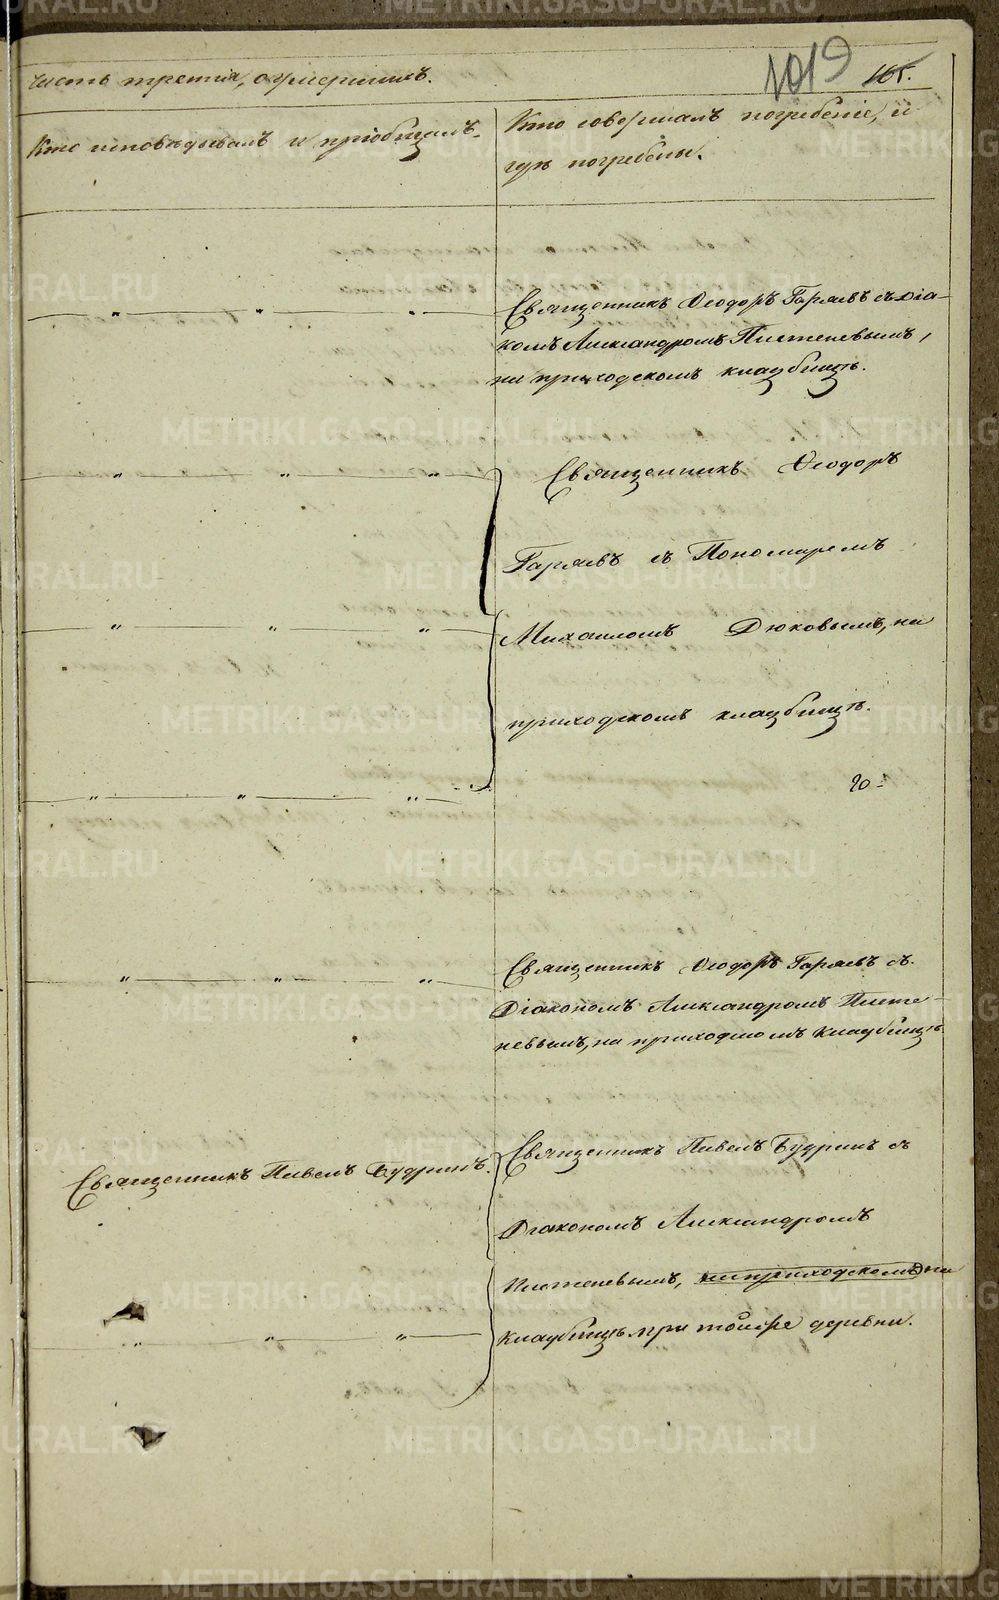 часть третія, о умершихъ.
1019 165.
Кто исповѣдывалъ и пріобщалъ.
Кто совершалъ погребеніе, и
гдѣ погребены.
Священникъ Ѳеодоръ Гаряевъ съ Діа-
кономъ Александромъ Плетеневымъ,
на приходскомъ кладбищѣ.
Священникъ Ѳеодоръ
Гаряевъ съ Пономаремъ
Михаиломъ Дюковымъ, на
приходскомъ кладбищѣ.
Священникъ Ѳеодоръ Гаряевъ съ
Діакономъ Александромъ Плете-
невымъ, на приходскомъ кладбищѣ
Священникъ Павелъ Будринъ.
Священникъ Павелъ Будринъ съ
Діакономъ Александромъ
Плетеневымъ, на приходскомъ на
кладбищѣ при той же деревни.
METRIKI.GASO-URAL.RU